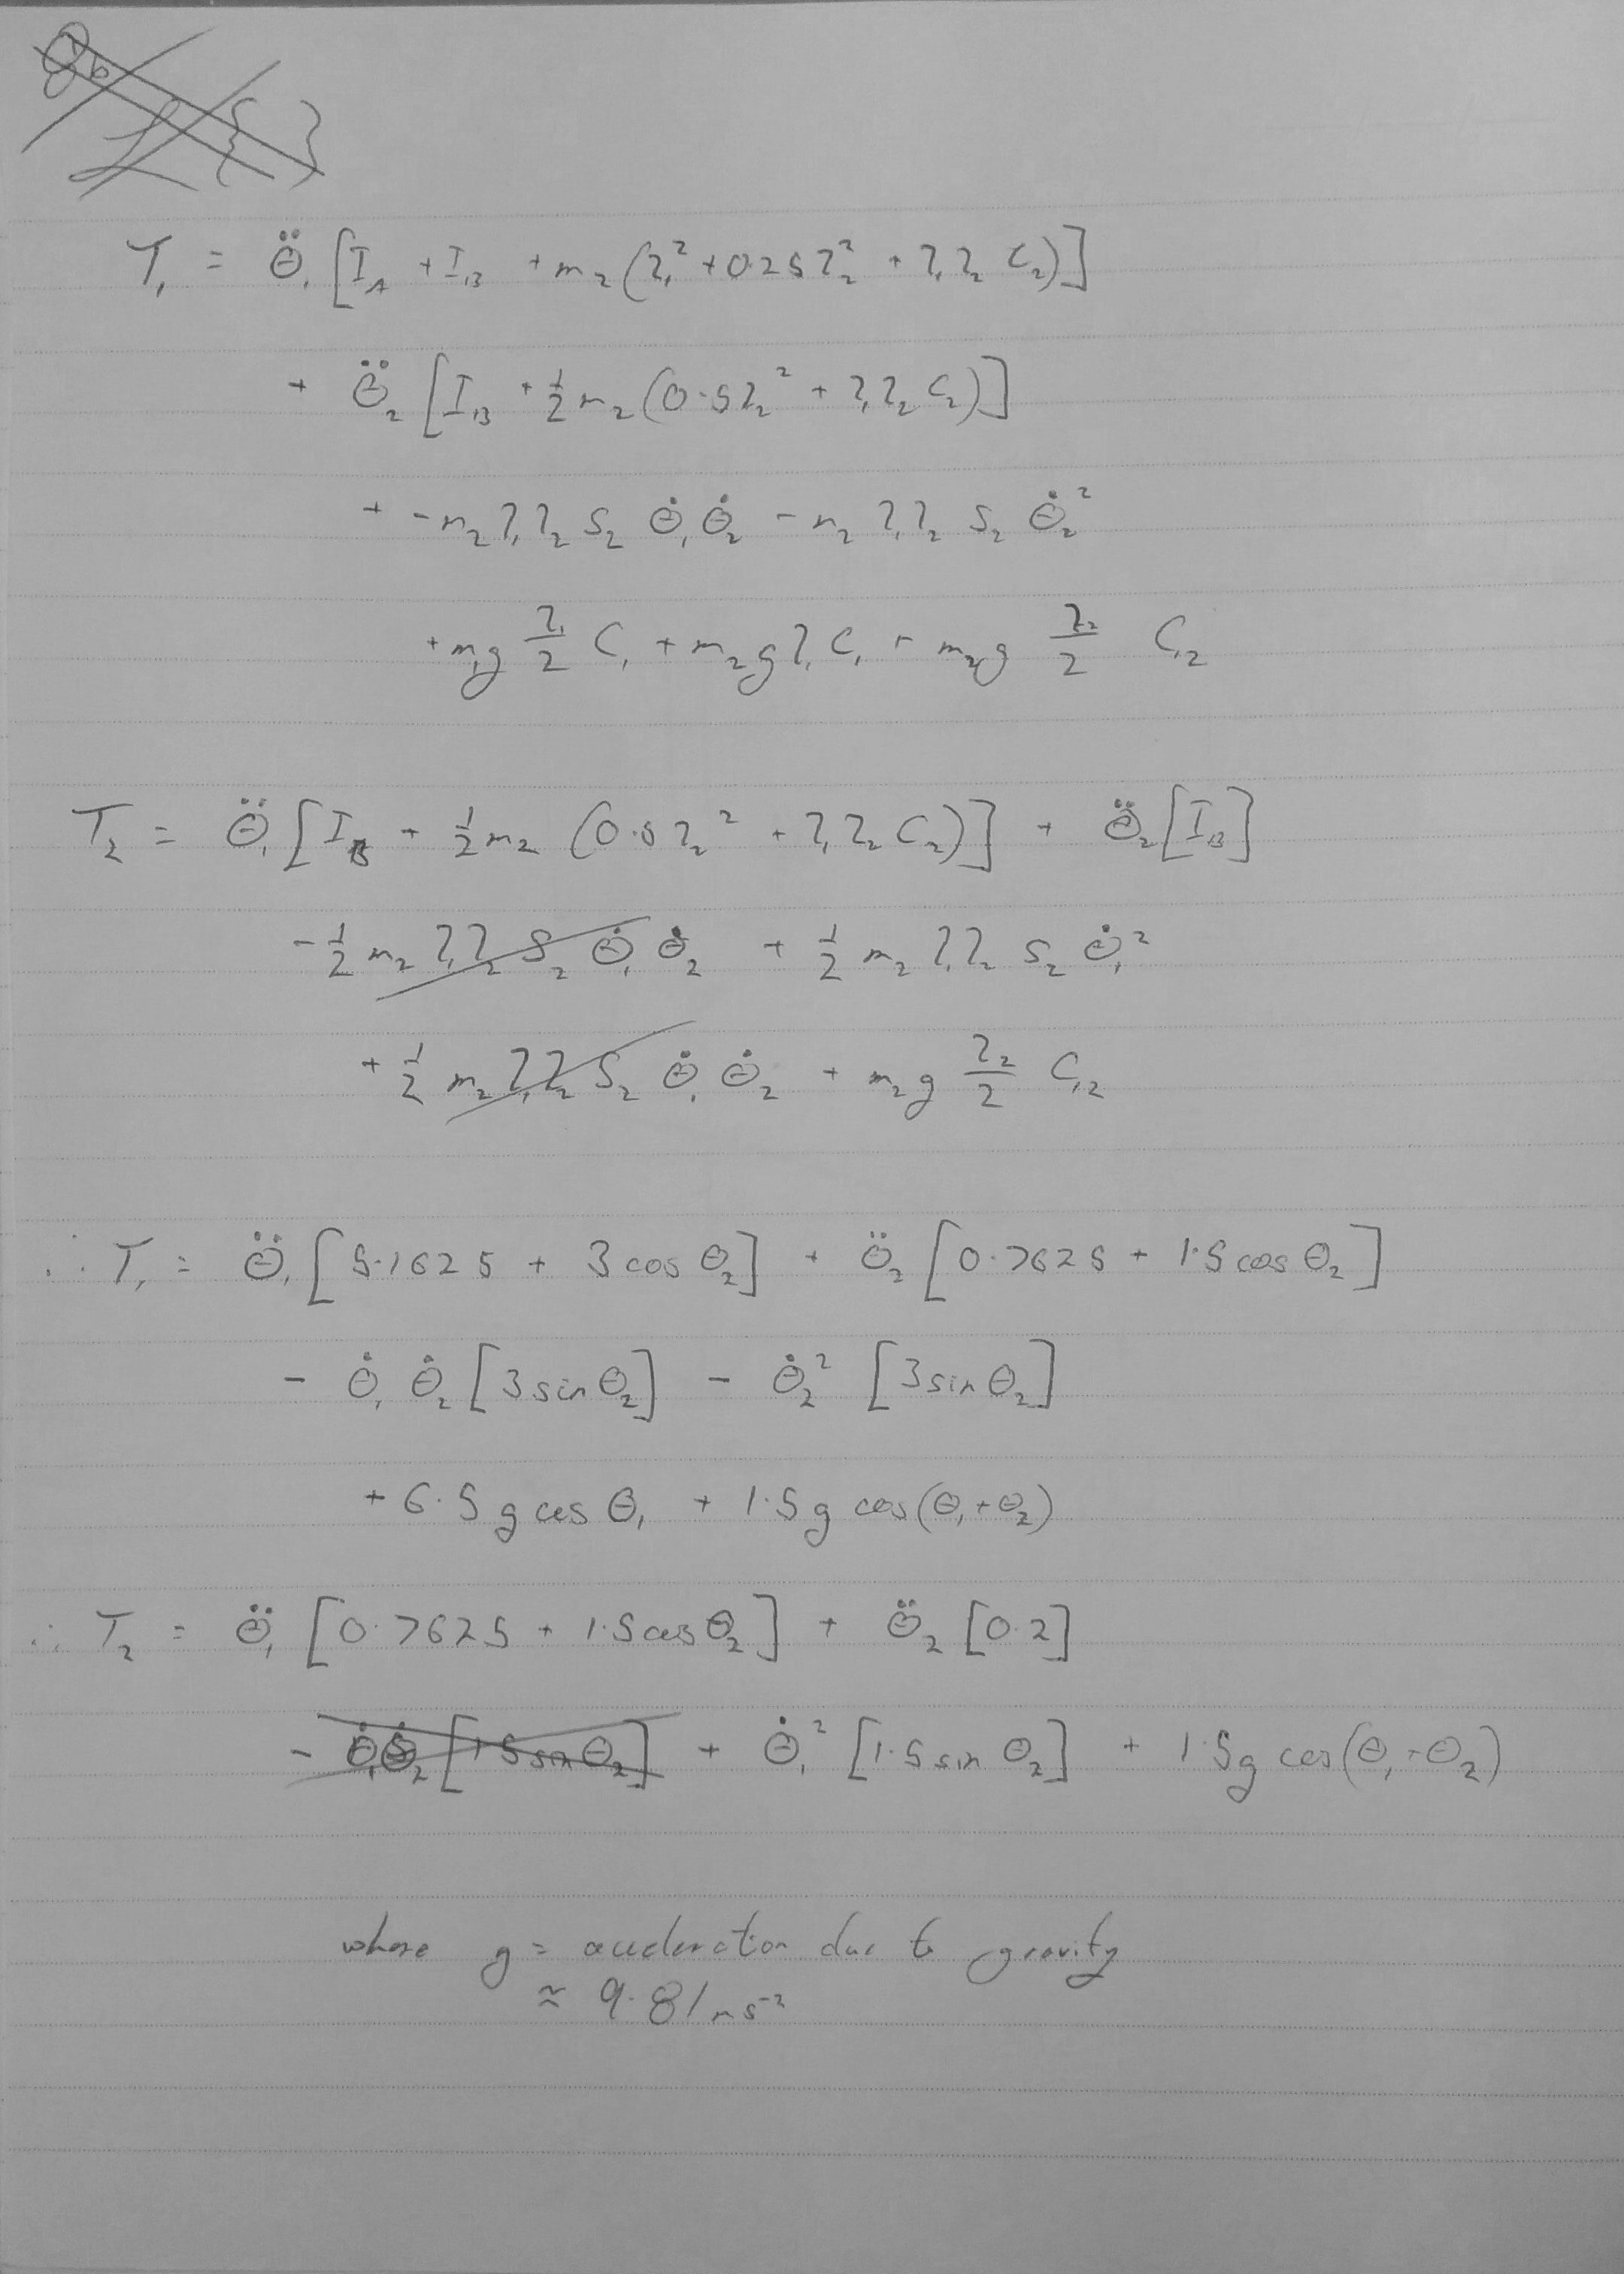 T₁ = θ̈₁ [I_A + I_B + m₂ (l₁² + 0.25 l₂² + l₁ l₂ C₂)]
+ θ̈₂ [I_B + ½ m₂ (0.5 l₂² + l₁ l₂ C₂)]
+ - m₂ l₁ l₂ S₂ θ̇₁ θ̇₂ - m₂ l₁ l₂ S₂ θ̇₂²
+ m₁g l₁/2 C₁ + m₂ g l₁ C₁ + m₂g l₂/2 C₁₂
T₂ = θ̈₁ [I_B + ½ m₂ (0.5 l₂² + l₁ l₂ C₂)] + θ̈₂ [I_B]
- ½ m₂ l₁ l₂ S₂ θ̇₁ θ̇₂ + ½ m₂ l₁ l₂ S₂ θ̇₁²
+ ½ m₂ l₁ l₂ S₂ θ̇₁ θ̇₂ + m₂ g l₂/2 C₁₂
∴ T₁ = θ̈₁ [5.1625 + 3 cos θ₂] + θ̈₂ [0.7625 + 1.5 cos θ₂]
- θ̇₁ θ̇₂ [3 sin θ₂] - θ̇₂² [3 sin θ₂]
+ 6.5 g cos θ₁ + 1.5 g cos(θ₁ + θ₂)
∴ T₂ = θ̈₁ [0.7625 + 1.5 cos θ₂] + θ̈₂ [0.2]
- θ̇₁ θ̇₂ [1.5 sin θ₂] + θ̇₁² [1.5 sin θ₂] + 1.5g cos(θ₁ + θ₂)
where g = acceleration due to gravity
≈ 9.81 ms⁻²